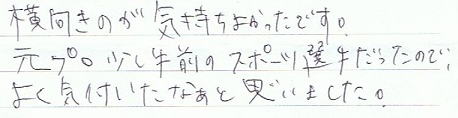 横向きのが気持ちよかったです。
元プロ少し手前のスポーツ選手だったので、
よく気付いたなぁと思いました。